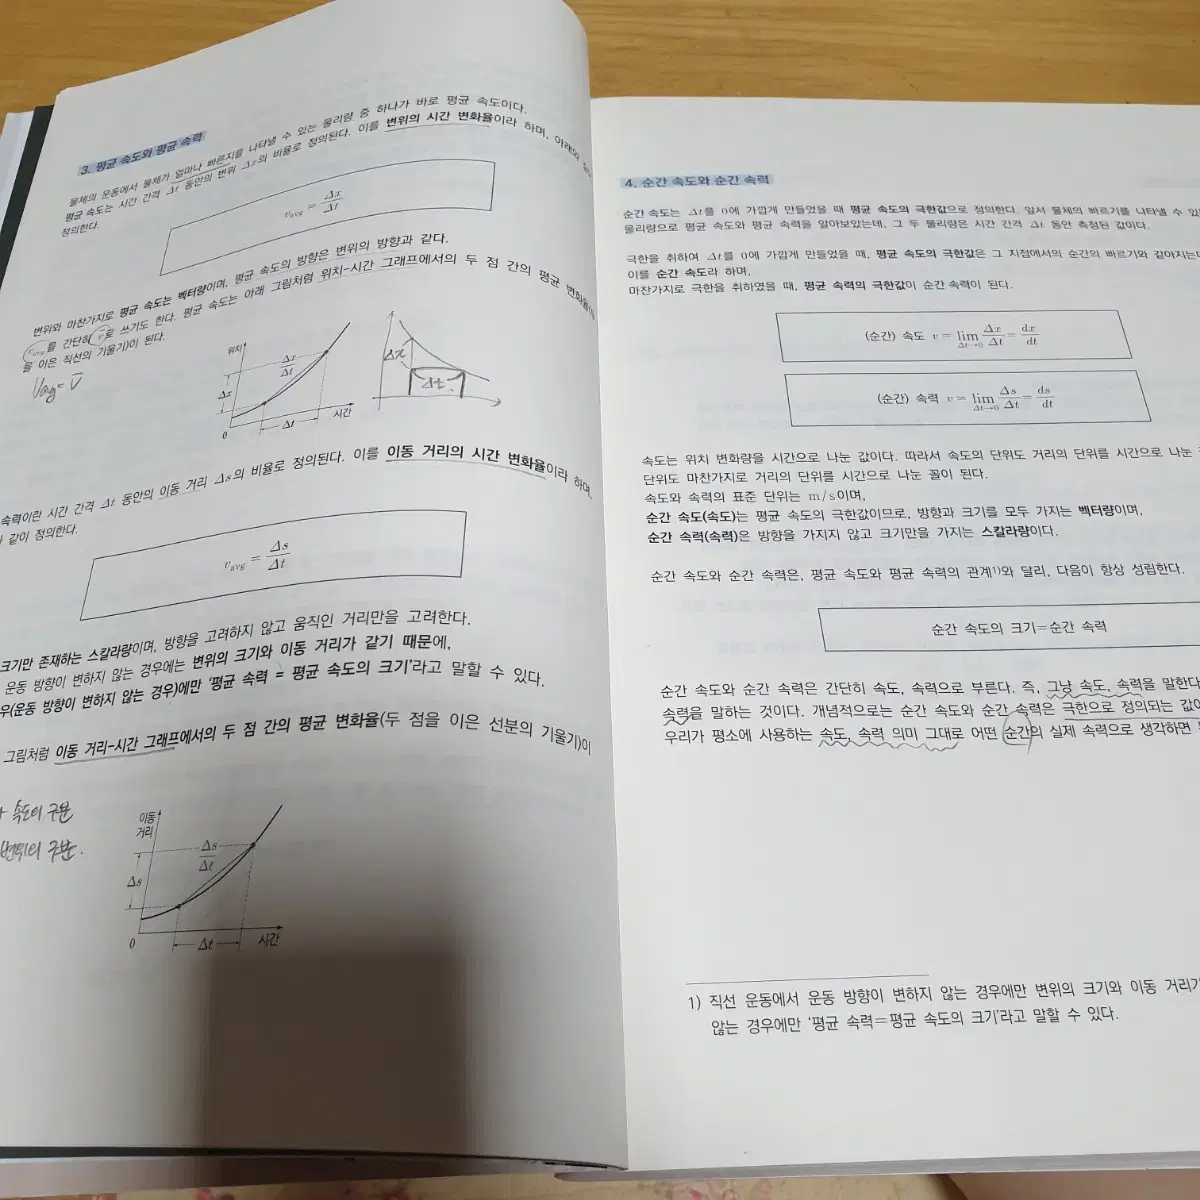 3. 평균 속도와 평균 속력
물체의 운동에서 물체가 얼마나 빠른지를 나타낼 수 있는 물리량 중 하나가 바로 평균 속도이다.
평균 속도는 시간 간격 Δt 동안의 변위 Δx의 비율로 정의된다. 이를 변위의 시간 변화율이라 하며, 아래와 같이
정의한다.
v_avg = Δx/Δt
변위와 마찬가지로 평균 속도는 벡터량이며, 평균 속도의 방향은 변위의 방향과 같다.
v_avg를 간단히 v̄로 쓰기도 한다. 평균 속도는 아래 그림처럼 위치-시간 그래프에서의 두 점 간의 평균 변화율(두
을 이은 직선의 기울기)이 된다.
Vavg = V̄
위치
Δx/Δt
Δx
0
Δt
시간
Δx
Δt
속력이란 시간 간격 Δt 동안의 이동 거리 Δs의 비율로 정의된다. 이를 이동 거리의 시간 변화율이라 하며,
같이 정의한다.
v_avg = Δs/Δt
크기만 존재하는 스칼라량이며, 방향을 고려하지 않고 움직인 거리만을 고려한다.
운동 방향이 변하지 않는 경우에는 변위의 크기와 이동 거리가 같기 때문에,
우(운동 방향이 변하지 않는 경우)에만 '평균 속력 = 평균 속도의 크기'라고 말할 수 있다.
그림처럼 이동 거리-시간 그래프에서의 두 점 간의 평균 변화율(두 점을 이은 선분의 기울기)이
속도의 구분
변위의 구분.
이동
거리
Δs/Δt
Δs
0
Δt
시간
4. 순간 속도와 순간 속력
순간 속도는 Δt를 0에 가깝게 만들었을 때 평균 속도의 극한값으로 정의한다. 앞서 물체의 빠르기를 나타낼 수 있
물리량으로 평균 속도와 평균 속력을 알아보았는데, 그 두 물리량은 시간 간격 Δt 동안 측정된 값이다.
극한을 취하여 Δt를 0에 가깝게 만들었을 때, 평균 속도의 극한값은 그 지점에서의 순간의 빠르기와 같아지는데
이를 순간 속도라 하며,
마찬가지로 극한을 취하였을 때, 평균 속력의 극한값이 순간 속력이 된다.
(순간) 속도 v = lim Δt→0 Δx/Δt = dx/dt
(순간) 속력 v = lim Δt→0 Δs/Δt = ds/dt
속도는 위치 변화량을 시간으로 나눈 값이다. 따라서 속도의 단위도 거리의 단위를 시간으로 나눈
단위도 마찬가지로 거리의 단위를 시간으로 나눈 꼴이 된다.
속도와 속력의 표준 단위는 m/s이며,
순간 속도(속도)는 평균 속도의 극한값이므로, 방향과 크기를 모두 가지는 벡터량이며,
순간 속력(속력)은 방향을 가지지 않고 크기만을 가지는 스칼라량이다.
순간 속도와 순간 속력은, 평균 속도와 평균 속력의 관계1)와 달리, 다음이 항상 성립한다.
순간 속도의 크기=순간 속력
순간 속도와 순간 속력은 간단히 속도, 속력으로 부른다. 즉, 그냥 속도, 속력을 말한다
속력을 말하는 것이다. 개념적으로는 순간 속도와 순간 속력은 극한으로 정의되는 값이
우리가 평소에 사용하는 속도, 속력 의미 그대로 어떤 순간의 실제 속력으로 생각하면
1) 직선 운동에서 운동 방향이 변하지 않는 경우에만 변위의 크기와 이동 거리가
않는 경우에만 '평균 속력=평균 속도의 크기'라고 말할 수 있다.